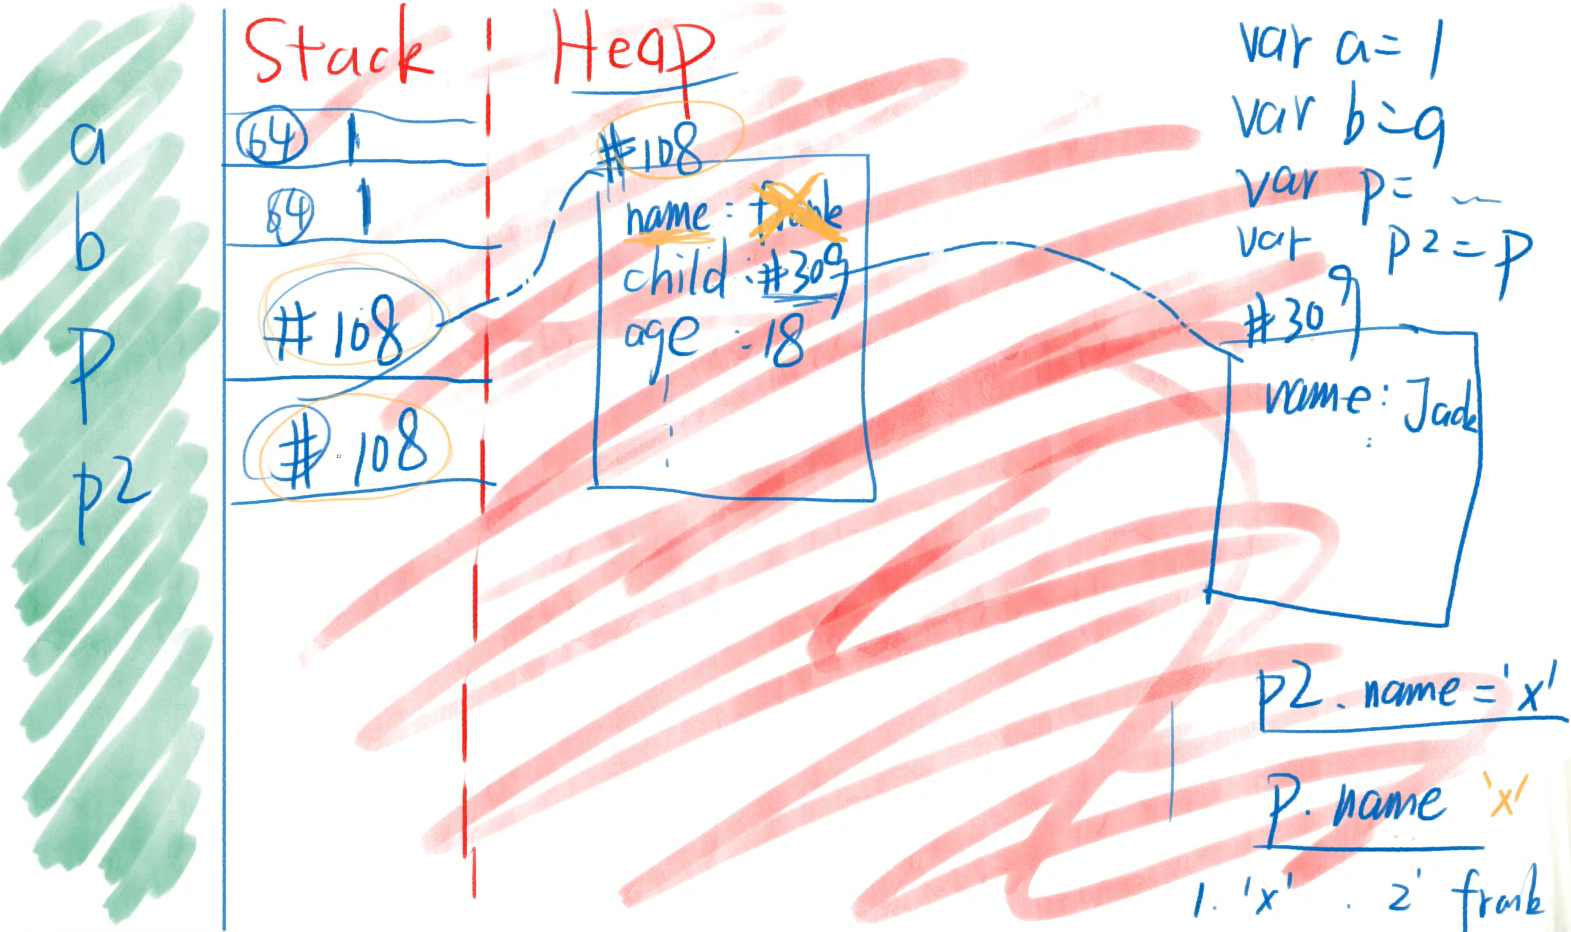 Stack Heap
a
b
p
p2
64 1
64 1
#108
# 108
#108
name : frank
child : #309
age : 18
var a = 1
var b = a
var p = ~
var p2 = p
#309
name : Jack
p2.name = 'x'
p.name 'x'
1. 'x' . 2' frank